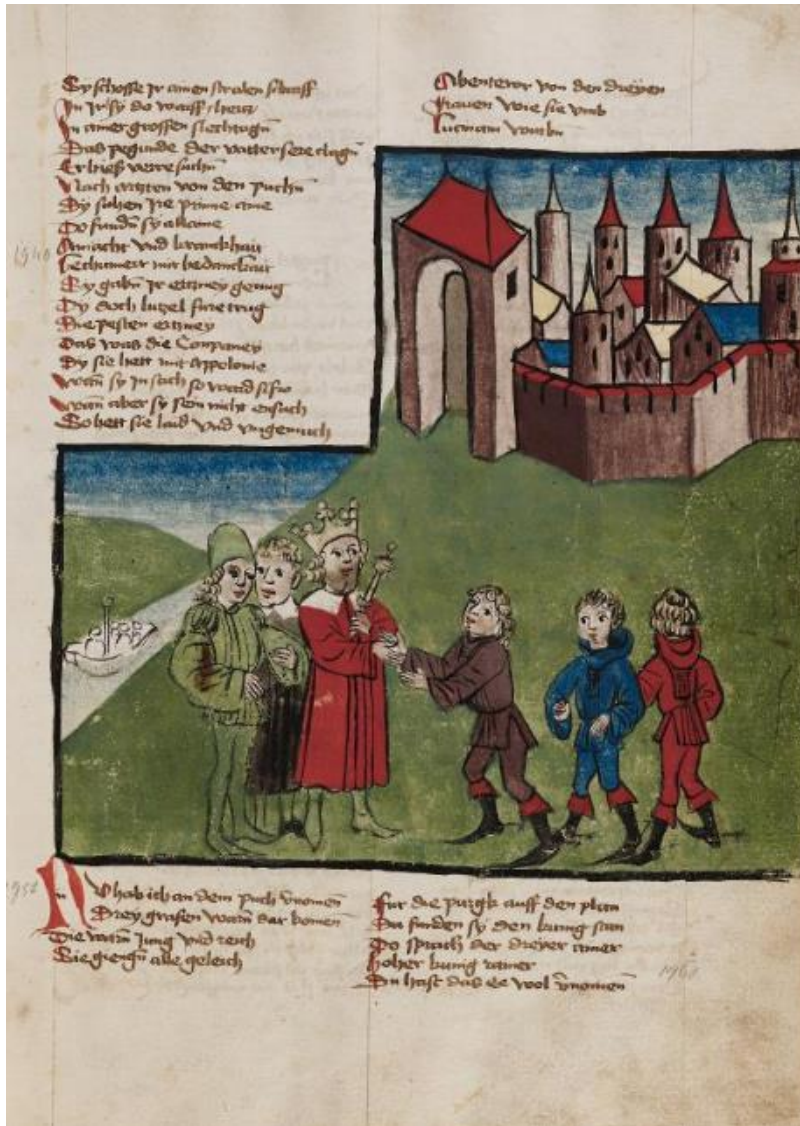 Sy schosse ir ainen stralen scharff
In ir sy do warff
In ainer grossen siechtagn̄
Das pegunde der vatter sere clagn̄
Er hieß verre suchn̄
Nach ertzten von den puchn̄
Dy sahen ire prunne ane
Do fundn̄ sy allaine
Amacht vnd kranckhait
mit
Sy gabn̄ ir ertzney genug
Dy doch lutzel fure trug
Die pesten ertzney
Das was die Companey
Dy sie hett mit Appolonie
Wan̄ sy in sach so ward si fro
Wan̄ aber sy sein nicht ensach
So hett sie laid vnd vngemach
1940
Abenteror von den dreyen
frauen wie sie vmb
Lucinam wurbn̄
1958
Nu hab ich an dem puch v̄nomen
Drey grafen warn̄ dar komen
Die warn̄ Jung vnd reich
Sie giengn̄ alle geleich
Fur die purgk auff den plan
Da funden sy den kunig stan
Do sprach der dreyer ainer
Hoher kunig rainer
Du hast das ee wol v̄nomen